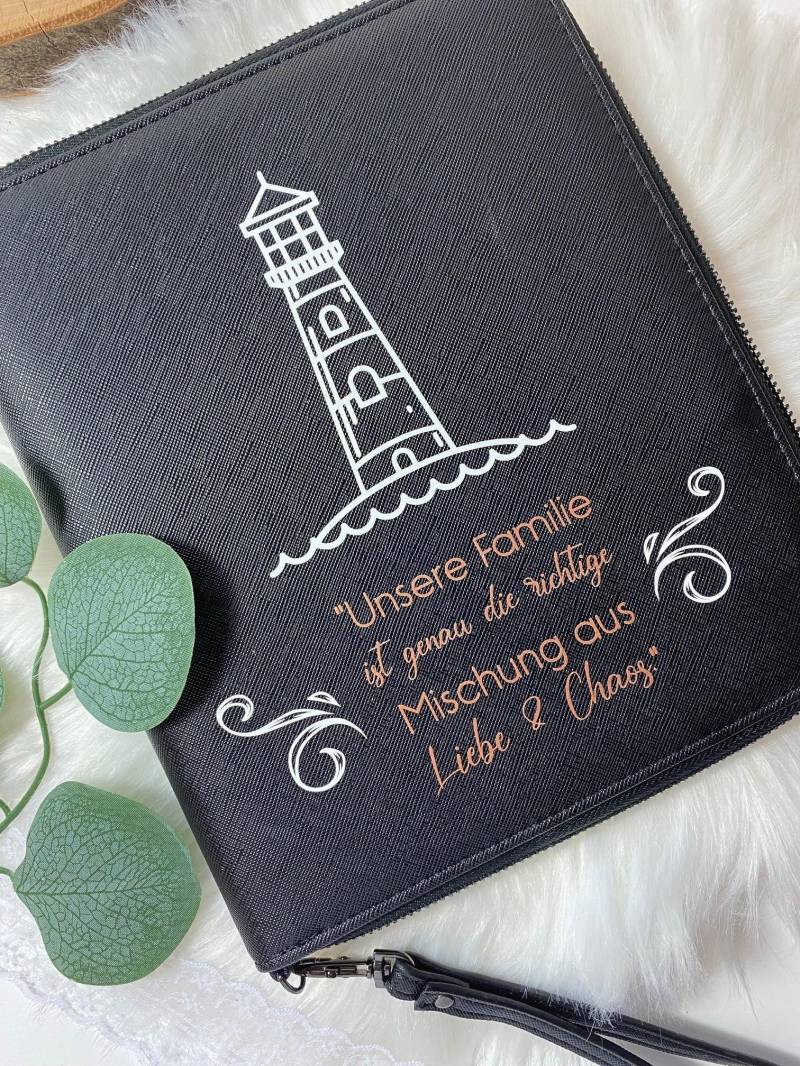 "Unsere Familie
ist genau die richtige
Mischung aus
Liebe & Chaos."